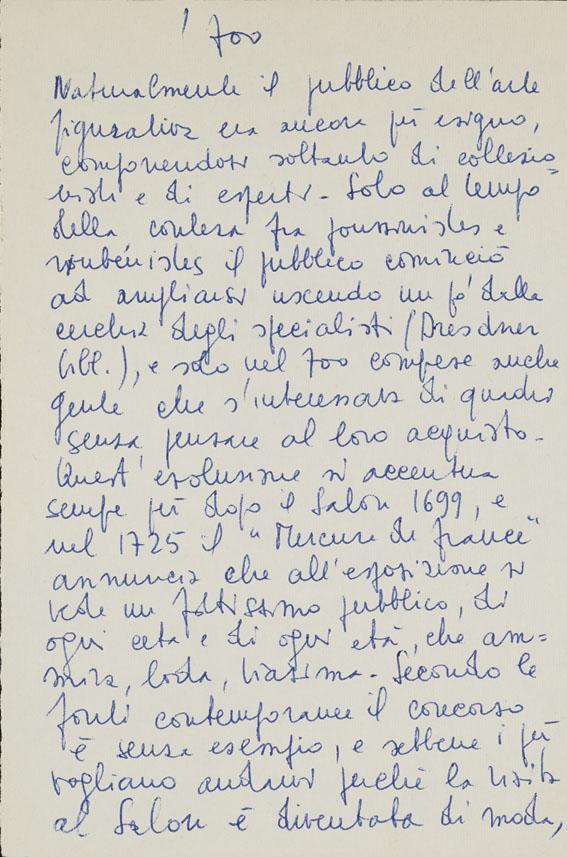 '700
Naturalmente il pubblico dell'arte
figurativa era ancora più esiguo,
componendosi soltanto di collezio-
nisti e di esperti - Solo al tempo
della contesa fra poussinistes e
roubénistes il pubblico cominciò
ad ampliarsi uscendo un pò dalla
cerchia degli specialisti (Dresdner
), e solo nel 700 comprese anche
gente che s'interessava di quadri
senza pensare al loro acquisto -
Quest'evoluzione si accentua
sempre più dopo il Salon 1699, e
nel 1725 il "Mercure de France"
annuncia che all'esposizione si
vede un foltissimo pubblico, di
ogni ceto e di ogni età, che am=
mira, loda, biasima - Secondo le
fonti contemporanee il concorso
è senza esempio, e sebbene i più
vogliano andarvi perchè la visita
al Salon è diventata di moda,